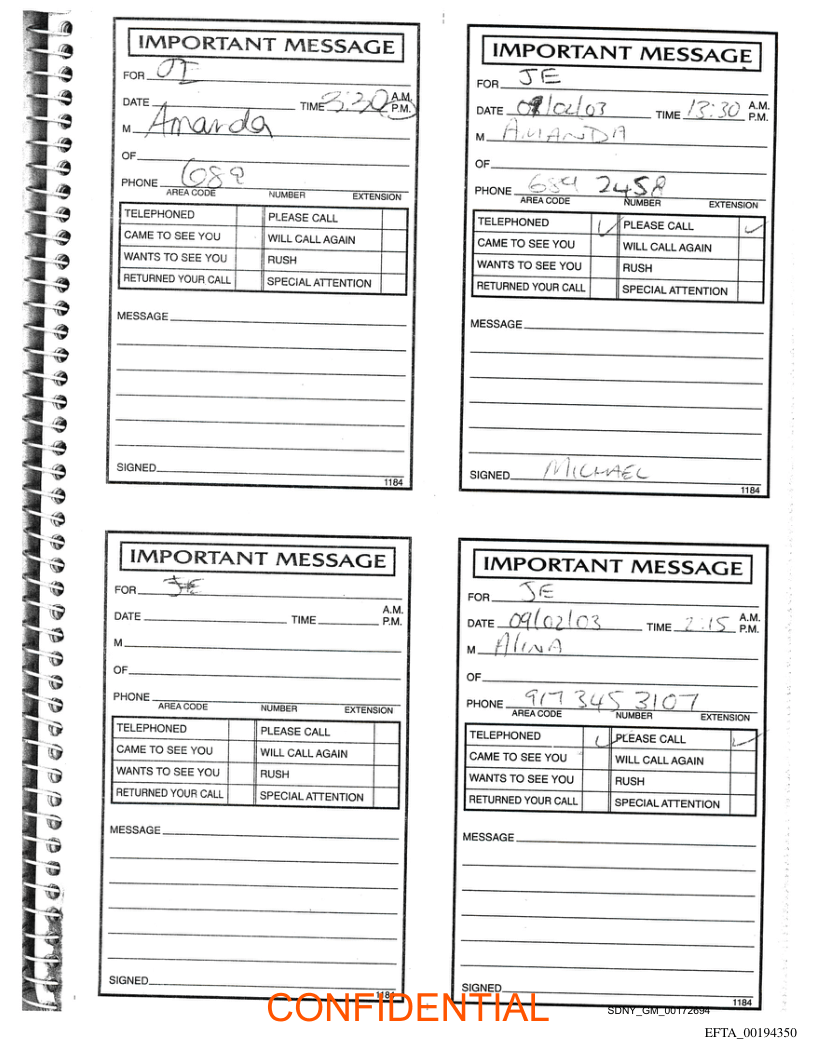 IMPORTANT MESSAGE
FOR JE
DATE TIME 3:30 A.M. P.M.
M Amanda
OF
PHONE 689
AREA CODE NUMBER EXTENSION
TELEPHONED PLEASE CALL
CAME TO SEE YOU WILL CALL AGAIN
WANTS TO SEE YOU RUSH
RETURNED YOUR CALL SPECIAL ATTENTION
MESSAGE
SIGNED
1184
IMPORTANT MESSAGE
FOR JE
DATE 09/02/03 TIME 13:30 A.M. P.M.
M AMANDA
OF
PHONE 659 2458
AREA CODE NUMBER EXTENSION
TELEPHONED ✓ PLEASE CALL ✓
CAME TO SEE YOU WILL CALL AGAIN
WANTS TO SEE YOU RUSH
RETURNED YOUR CALL SPECIAL ATTENTION
MESSAGE
SIGNED MICHAEL
1184
IMPORTANT MESSAGE
FOR JE
DATE TIME A.M. P.M.
M
OF
PHONE
AREA CODE NUMBER EXTENSION
TELEPHONED PLEASE CALL
CAME TO SEE YOU WILL CALL AGAIN
WANTS TO SEE YOU RUSH
RETURNED YOUR CALL SPECIAL ATTENTION
MESSAGE
SIGNED
1184
IMPORTANT MESSAGE
FOR JE
DATE 09/02/03 TIME 2:15 A.M. P.M.
M AlINA
OF
PHONE 917 345 3107
AREA CODE NUMBER EXTENSION
TELEPHONED ✓ PLEASE CALL ✓
CAME TO SEE YOU WILL CALL AGAIN
WANTS TO SEE YOU RUSH
RETURNED YOUR CALL SPECIAL ATTENTION
MESSAGE
SIGNED
1184
CONFIDENTIAL
SDNY_GM_00172694
EFTA_00194350